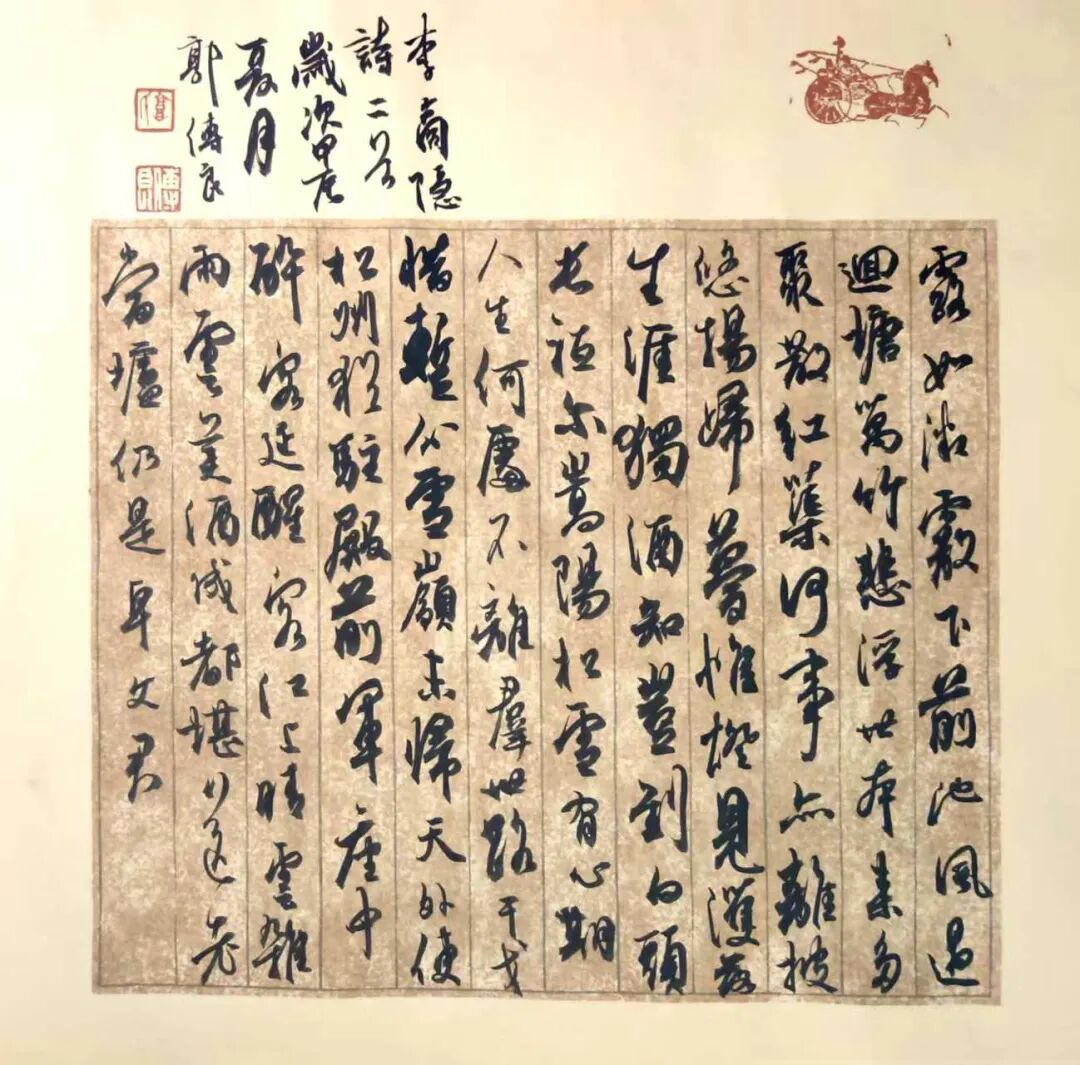 露如微霰下前池風過
迴塘萬竹悲浮世本来多
聚散红蕖何事亦離披
悠揚歸夢惟燈見濩落
生涯獨酒知豈到白頭
长祗尔嵩陽松雪有心期
人生何處不離羣世路干戈
惜暫分雪嶺未歸天外使
松州猶駐殿前軍座中
醉客延醒客江上晴雲雜
雨雲美酒成都堪送老
當壚仍是卓文君
李商隐
詩二首
歲次甲辰
夏月
郭傳良